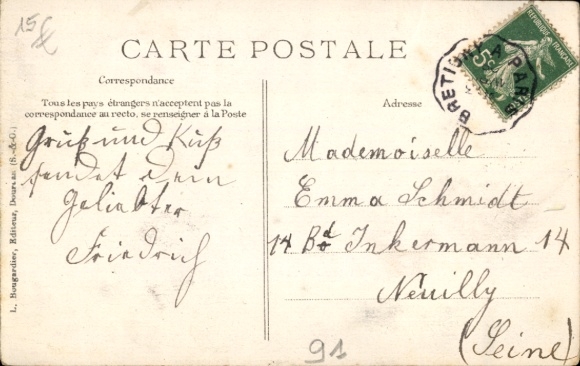 15
CARTE POSTALE
Correspondance
Tous les pays étrangers n'acceptent pas la
correspondance au recto, se renseigner à la Poste
Gruß und Kuß
sendet dein
Geliebter
Friedrich
Adresse
Mademoiselle
Emma Schmidt
14 Bd Inkermann 14
Neuilly
(Seine)
91
L. Bougardier, Editeur, Dourdan (S.-&-O.)
RÉPUBLIQUE FRANÇAISE
5c
BRETIGNY A PARIS